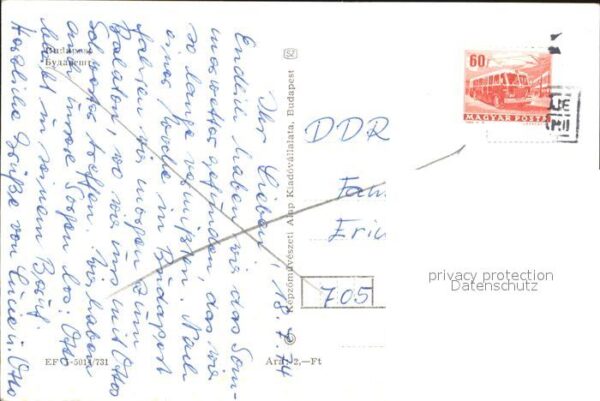 Budapest
Будапешт
Ihr Lieben! 18.7.74
Endlich haben wir das Som-
merwetter gefunden, das wir
so lange vermißten. Nach
einer Woche in Budapest
fahren wir morgen zum
Balaton wo wir uns mit
treffen. Wir haben
auch unsere Sorgen los:
in seinem Beruf.
Herzliche Grüße von
EF 5014/731
Képzőművészeti Alap Kiadóvállalata, Budapest
Ára 2,—Ft
60f
MAGYAR POSTA
DDR
Fam
Eric
705
privacy protection
Datenschutz